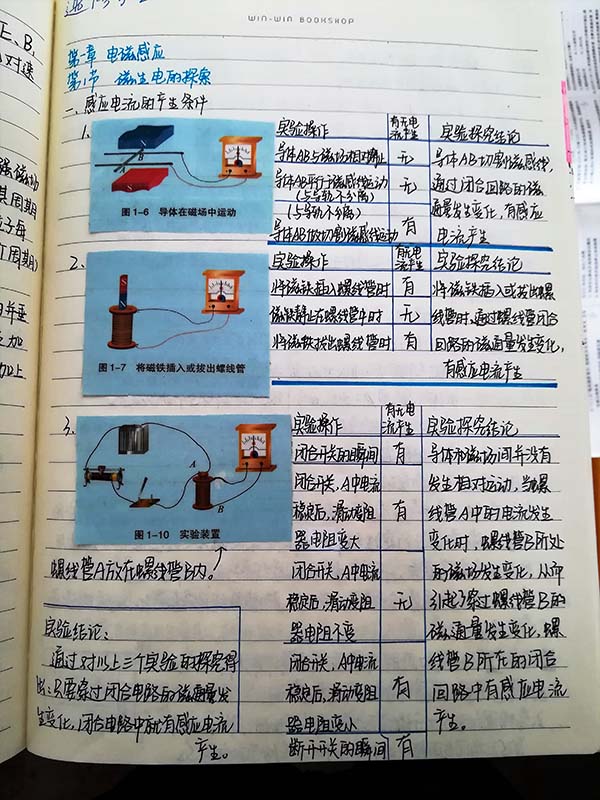 WIN-WIN BOOKSHOP
第一章 电磁感应
第1节 磁生电的探索
一、感应电流的产生条件
1、
图1-6 导体在磁场中运动
实验操作
有无电流产生
实验探究结论
导体AB与磁场相对静止
无
导体AB平行于磁感线运动
(与导轨不分离)
无
(与导轨不分离)
导体AB做切割磁感线运动
有
导体AB切割磁感线,
通过闭合回路的磁
通量发生变化,有感应
电流产生
2、
图1-7 将磁铁插入或拔出螺线管
实验操作
有无电流产生
实验探究结论
将磁铁插入螺线管时
有
磁铁静止在螺线管中时
无
将磁铁拔出螺线管时
有
将磁铁插入或拔出螺
线管时,通过螺线管闭合
回路的磁通量发生变化,
有感应电流产生
3、
A
B
图1-10 实验装置
螺线管A放在螺线管B内。
实验操作
有无电流产生
实验探究结论
闭合开关的瞬间
有
闭合开关,A中电流
稳定后,滑动变阻
器电阻变大
有
闭合开关,A中电流
稳定后,滑动变阻
器电阻不变
无
闭合开关,A中电流
稳定后,滑动变阻
器电阻变小
有
断开开关的瞬间
有
导体和磁场间并没有
发生相对运动,当螺
线管A中的电流发生
变化时,螺线管B所处
的磁场发生变化,从而
引起了穿过螺线管B的
磁通量发生变化,螺
线管B所在的闭合
回路中有感应电流
产生。
实验结论:
通过对以上三个实验的探究得
出:只要穿过闭合电路的磁通量发
生变化,闭合电路中就有感应电流
产生。